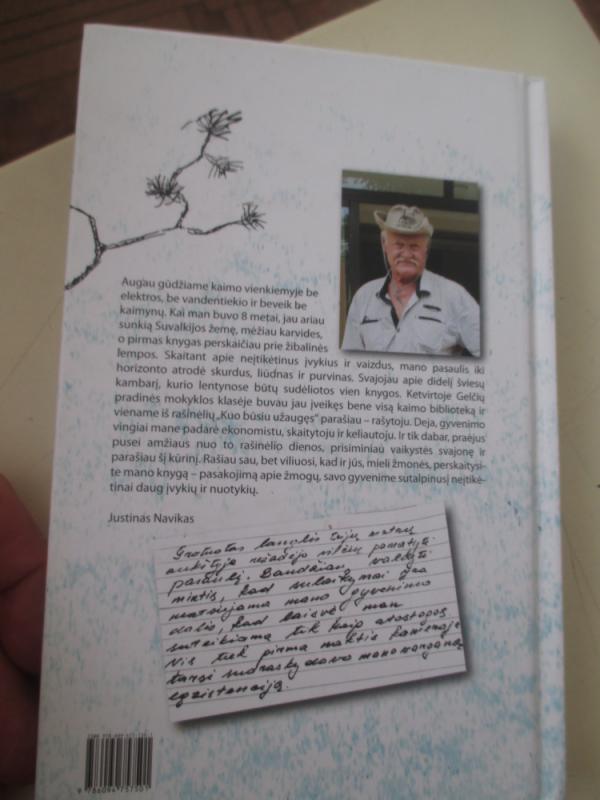 Augau gūdžiame kaimo vienkiemyje be
elektros, be vandentiekio ir beveik be
kaimynų. Kai man buvo 8 metai, jau ariau
sunkią Suvalkijos žemę, mėžiau karvides,
o pirmas knygas perskaičiau prie žibalinės
lempos. Skaitant apie neįtikėtinus įvykius ir vaizdus, mano pasaulis iki
horizonto atrodė skurdus, liūdnas ir purvinas. Svajojau apie didelį šviesų
kambarį, kurio lentynose būtų sudėliotos vien knygos. Ketvirtoje Gelčių
pradinės mokyklos klasėje buvau jau įveikęs bene visą kaimo biblioteką ir
viename iš rašinėlių „Kuo būsiu užaugęs“ parašiau – rašytoju. Deja, gyvenimo
vingiai mane padarė ekonomistu, skaitytoju ir keliautoju. Ir tik dabar, praėjus
pusei amžiaus nuo to rašinėlio dienos, prisiminiau vaikystės svajonę ir
parašiau šį kūrinį. Rašiau sau, bet viliuosi, kad ir jūs, mieli žmonės, perskaitysi-
te mano knygą – pasakojimą apie žmogų, savo gyvenime sutalpinusį neįtikė-
tinai daug įvykių ir nuotykių.
Justinas Navikas
Grotuotas langelis trijų metrų
aukštyje nežadėjo vilčių pamatyti
pasaulį. Bandžiau valdyti
mintis, kad sulaikymai yra
mano gyvenimo
dalis, kad laisvė man
suteikiama tik kaip atostogos.
Vis tiek pirma naktis kameroje
tarsi sudraskydavo mano
egzistenciją.